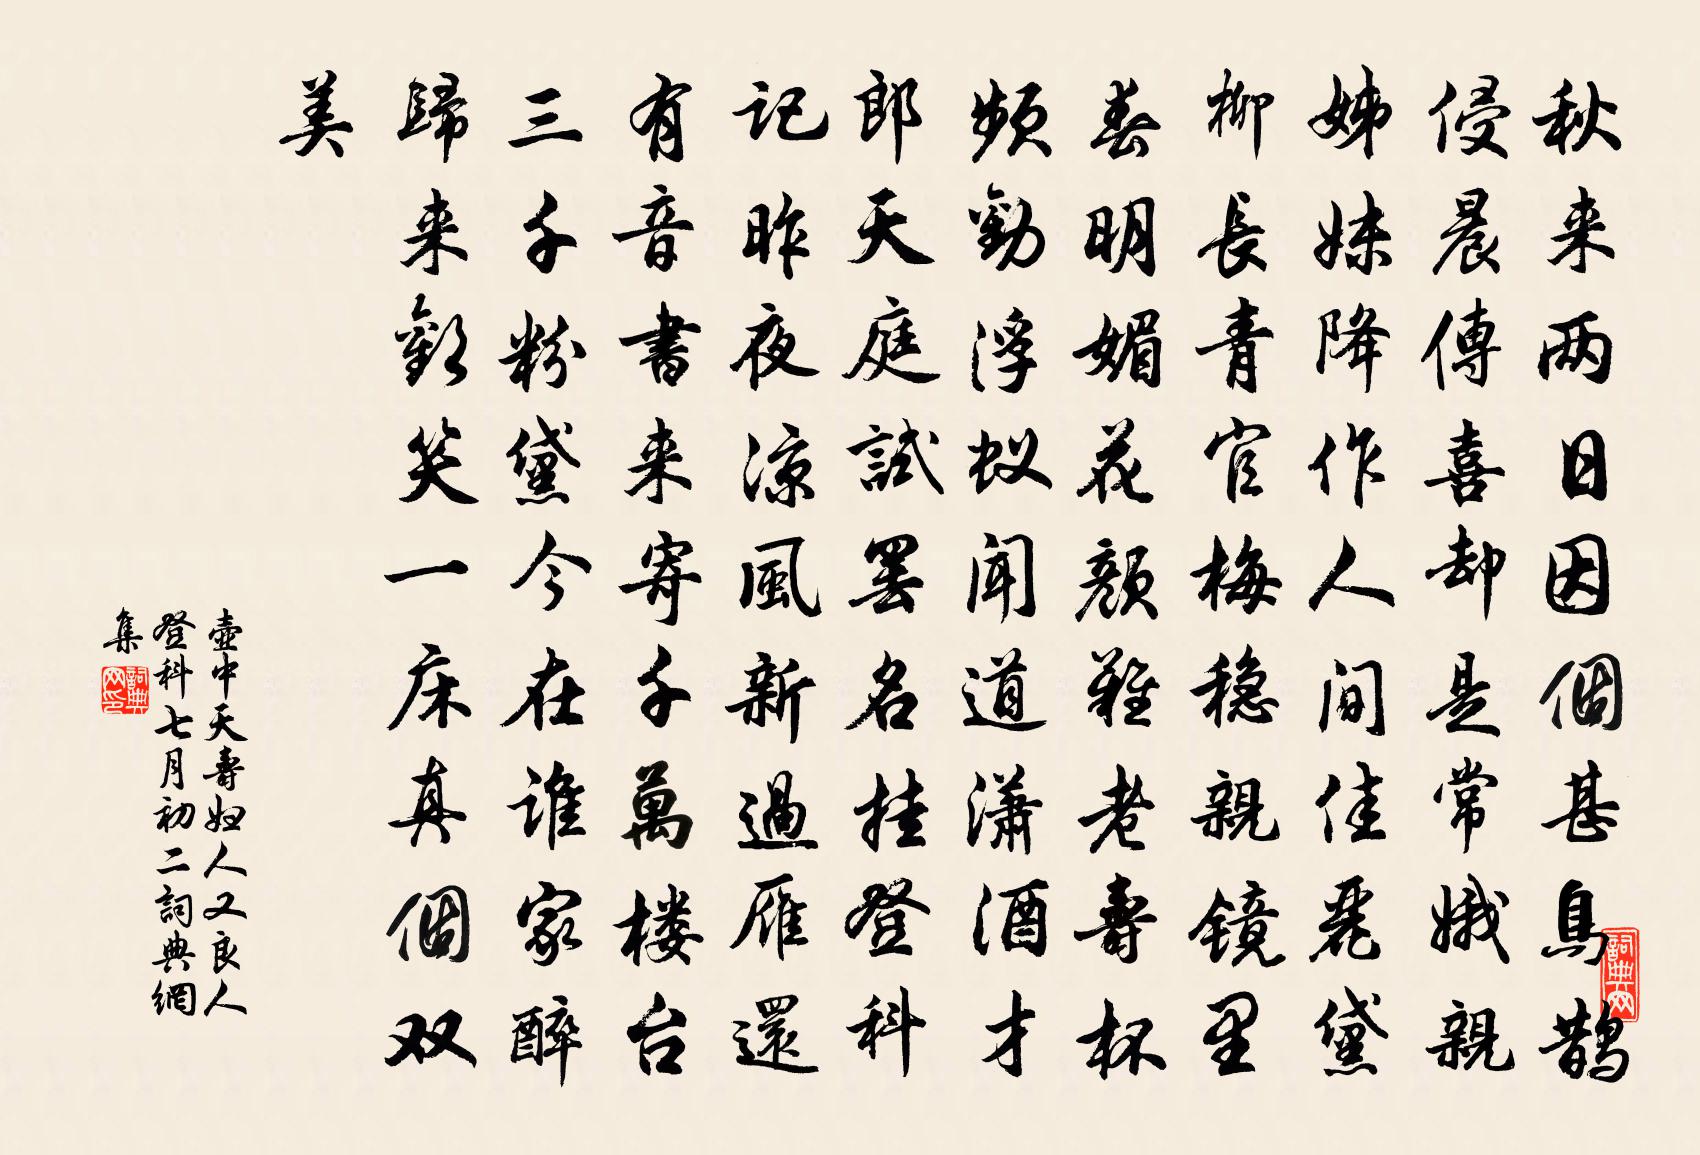 秋来两日因個甚鳥鹊
侵晨傳喜却是常娥親
姊妹降作人间佳麗黛
柳長青官梅穏親镜里
春明媚花顔難老壽杯
頻勸浮蚁闻道潇洒才
郎天庭試罢名挂登科
记昨夜凉風新過雁還
有音書来寄千萬楼台
三千粉黛今在谁家醉
歸来歡笑一床真個双
美
壷中天壽妇人又良人
登科七月初二詞典網
集
詞典网
詞典网印